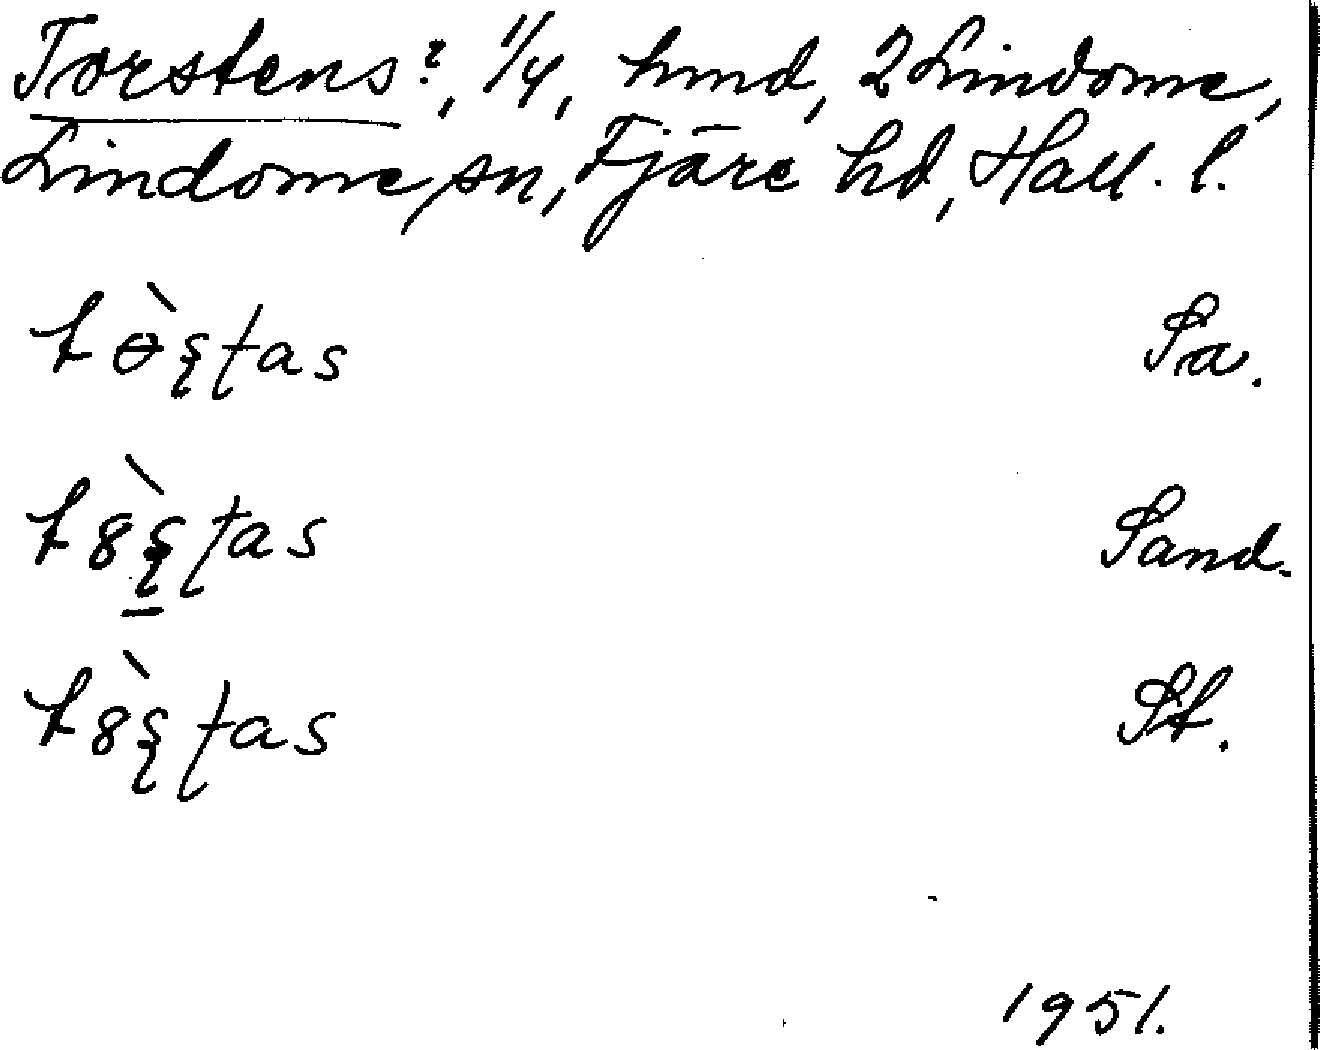 Torstens?, 1/4, hmd, 2 Lindome,
Lindome sn, Fjäre hd, Hall. l.
tɵ̀ʂʈas Sa.
t8̀ʂʈas Sand.
t8̀ʂʈas St.
1951.